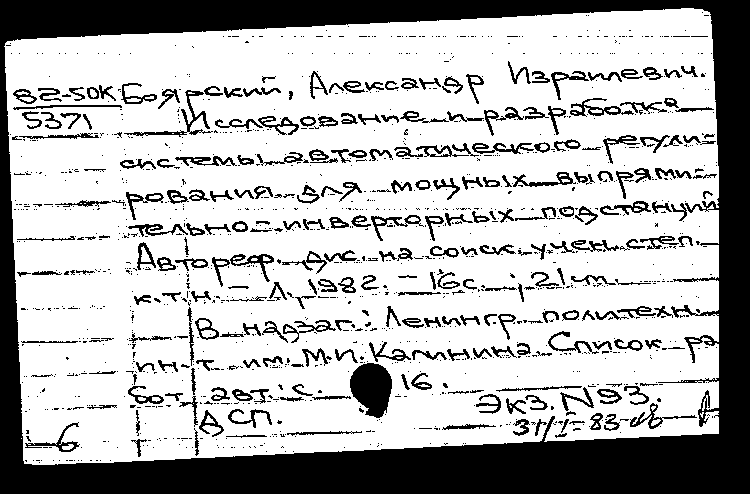 82-50К Боярский, Александр Израилевич.
5371 Исследование и разработка
системы автоматического регули-
рования для мощных выпрями-
тельно-инверторных подстанций
Автореф. дис. на соиск. учен. степ.
к.т.н. – Л., 1982. – 16с. ; 21 см.
В надзаг.: Ленингр. политехн.
ин-т им. М.И. Калинина. Список ра
бот авт.: с. 16.
ДСП. Экз. N93.
6 31/I-83